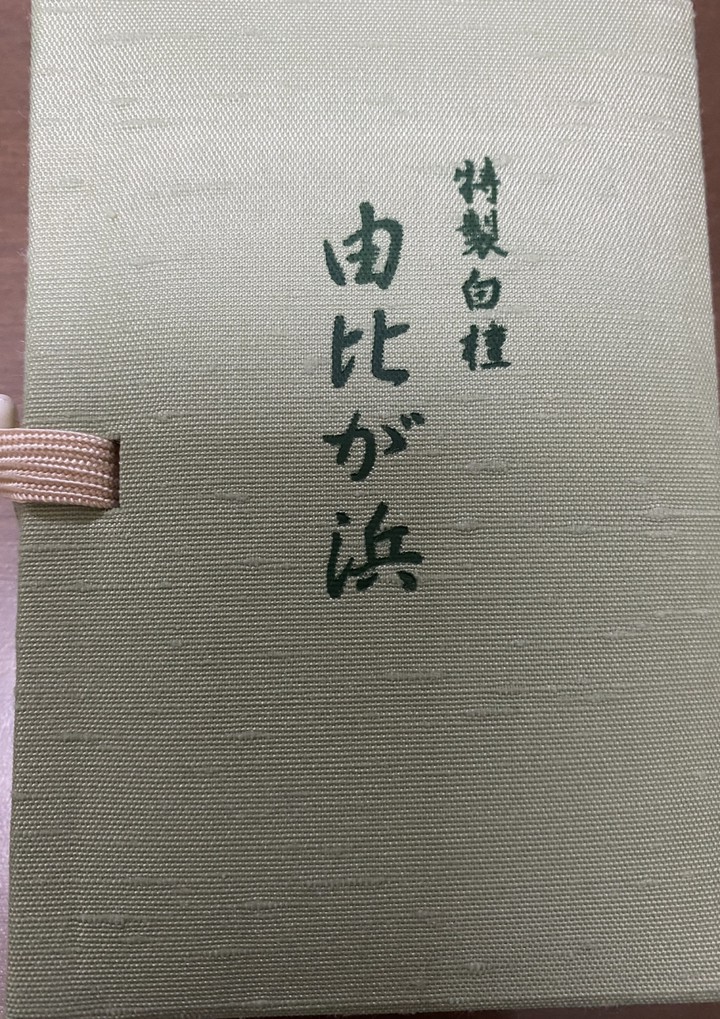 特製白檀
由比が浜